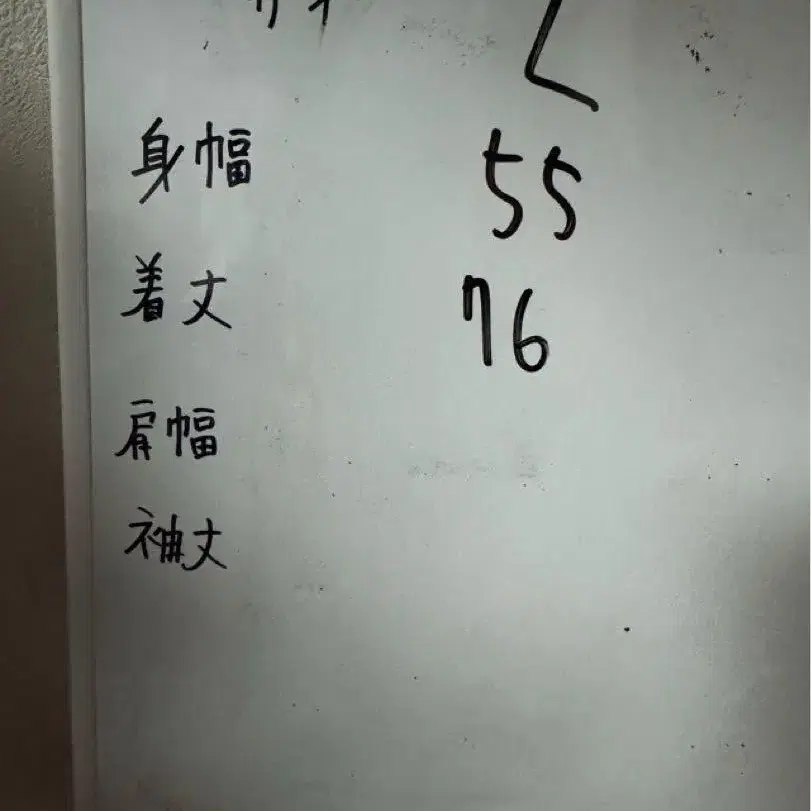 L
身幅 55
着丈 76
肩幅
袖丈